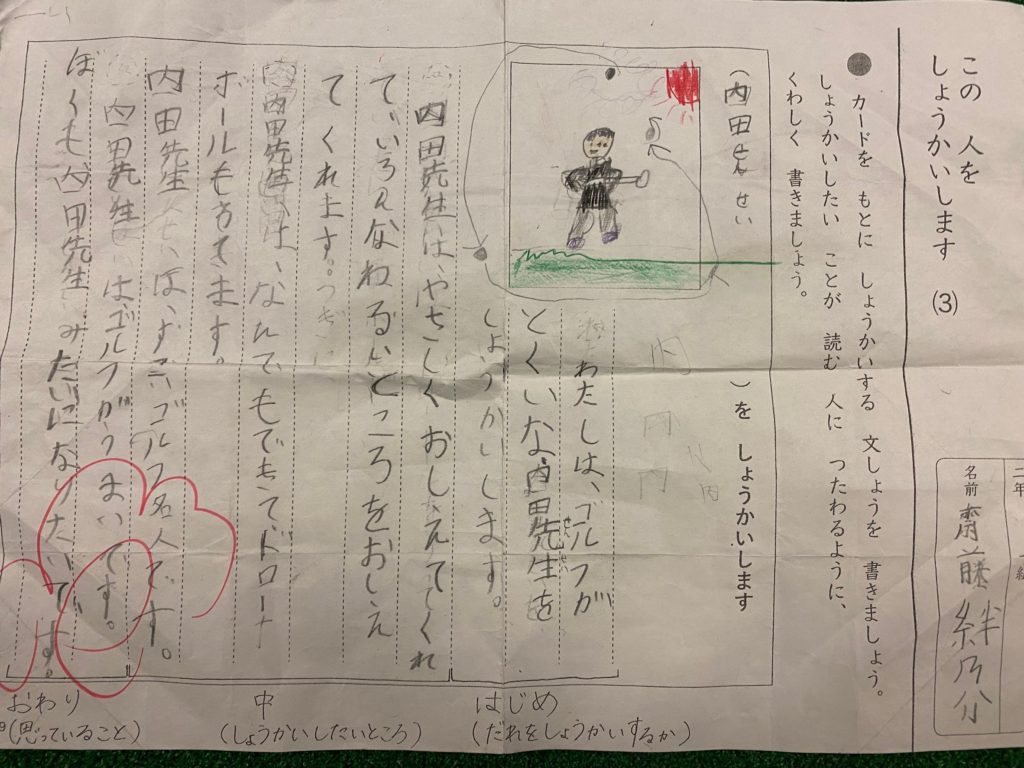 この 人を
しょうかいします (3)
二年 一組
名前
● カードを もとに しょうかいする 文しょうを 書きましょう。
しょうかいしたい ことが 読む 人に つたわるように、
くわしく 書きましょう。
(内田せんせい)を しょうかいします
わたしは、ゴルフが
とくいな、内田先生を
しょうかいします。
内田先生は、やさしくおしえてくれ
て、いろんなわるいところをおしえ
てくれます。つぎに
内田先生は、なんでもできて、ドロー
ボールもうてます。
内田先生は、ゴルフ名人です。
内田先生は、ゴルフがうまいです。
ぼくも、内田先生みたいになりたいです。
はじめ
(だれをしょうかいするか)
中
(しょうかいしたいところ)
おわり
(思っていること)